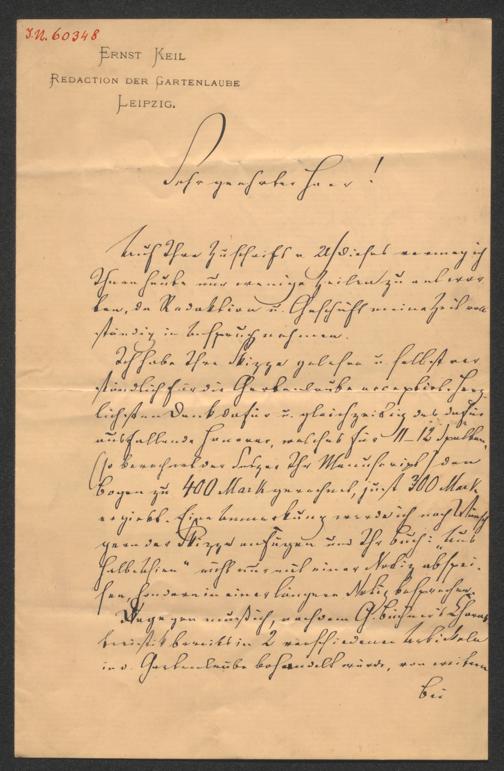 J.N. 60348
ERNST KEIL
REDACTION DER GARTENLAUBE
LEIPZIG.
Sehr geehrter Herr!
Auf Ihre Zuschrift v. 21/ dieses vermag ich
Ihnen heute nur wenige Zeilen zu antwor
ten, da Redaktion u. Geschäft meine Zeit voll
ständig in Anspruch nehmen.
Ich habe Ihre Skizze gelesen u. selbstver
ständlich für die Gartenlaube acceptirt. Herz
lichsten Dank dafür u. gleichzeitig das dafür
ausfallende Honorar, welches für 11-12 Spalten,
(so berechnet der Setzer Ihr Manuscript) den
Bogen zu 400 Mark gerechnet, just 300 Mark
ergiebt. Eine Anmerkung werde ich nach Wunsch
gern der Skizze anfügen und Ihr Buch: "Aus
Halbasien" nicht nur mit einer Notiz abspei-
sen, sondern in einer längern Notiz besprechen.
Dagegen muß ich, nachdem G. Büchner's Charak
teristik bereits in 2 verschiedenen Artikeln
in d. Gartenlaube behandelt wurde, von weitern
Bei